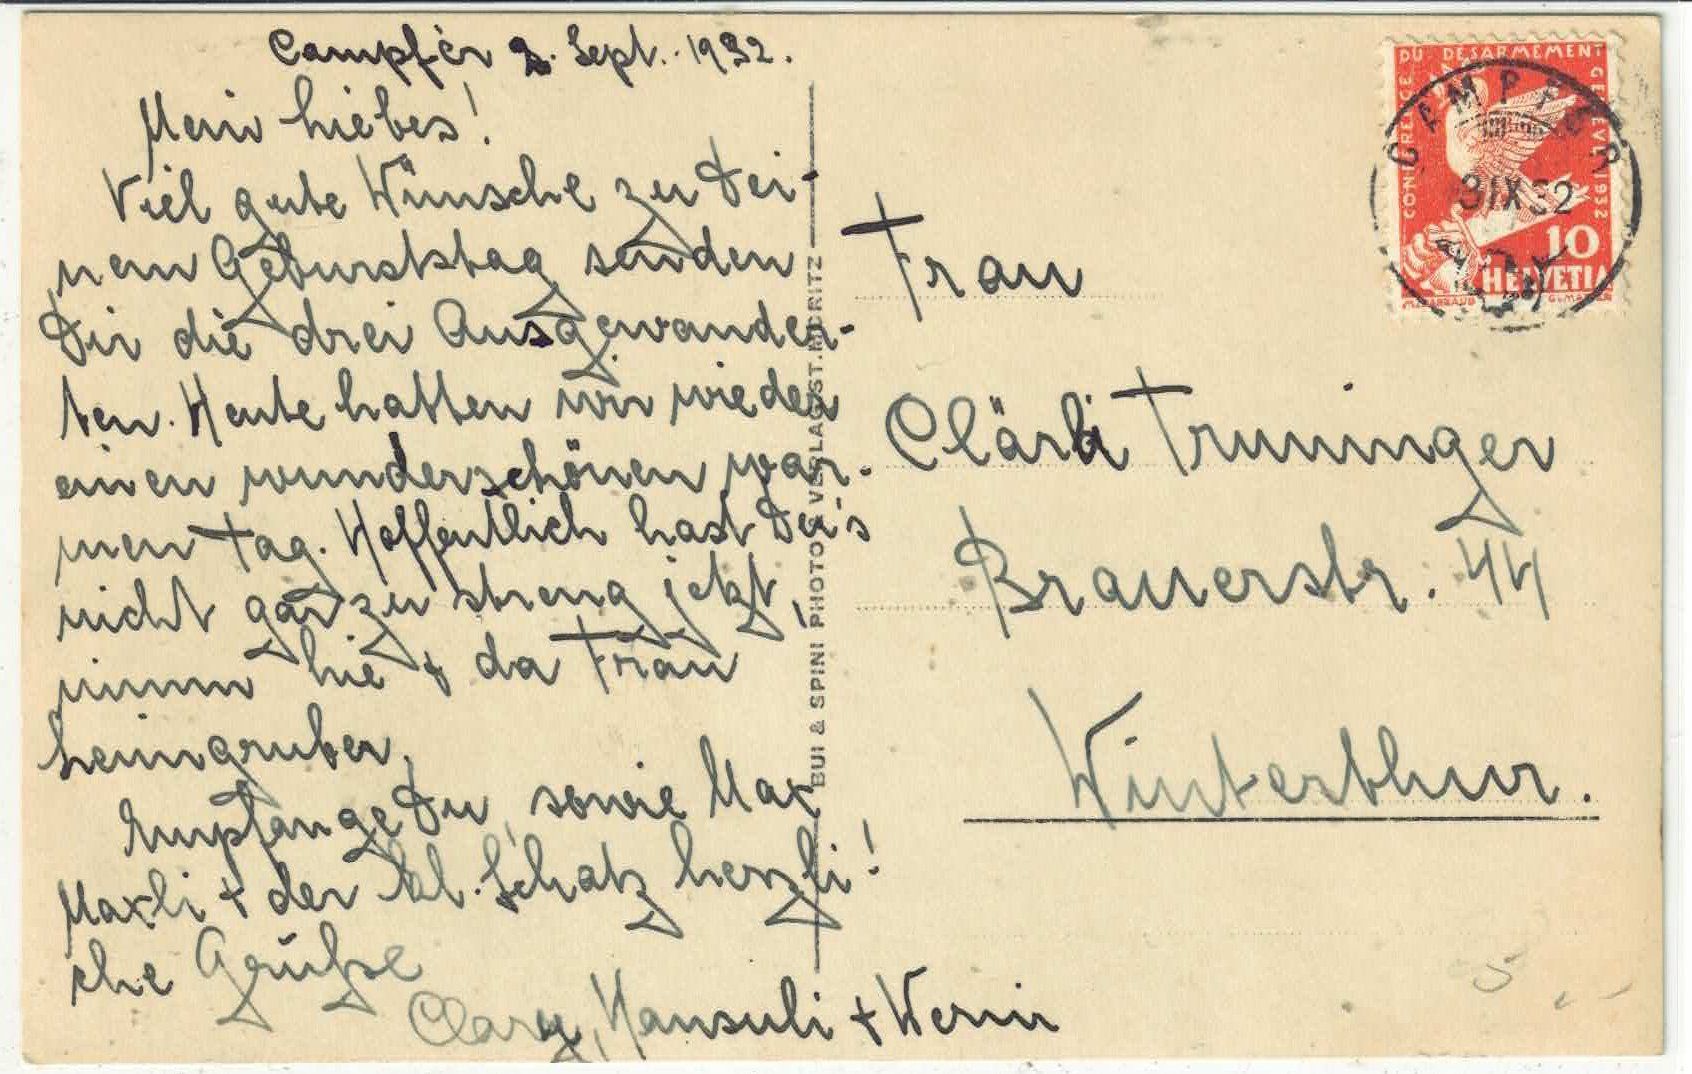 Campfèr 2. Sept. 1932.
Mein Liebes!
Viel gute Wünsche zu Dei-
nem Geburtstag senden
Dir die drei Ausgewander-
ten. Heute hatten wir wieder
einen wunderschönen war-
men Tag. Hoffentlich hast Du's
nicht gar zu streng jetzt,
nimm hie & da Frau
Heimgruber.
Empfange Du, sowie Max
Maxli + der kl. Schatz herzli!
che Grüße
Clary, Hansuli + Werni
BUI & SPINI PHOTO VERLAG ST. MORITZ
Frau
Clärli Truninger
Brauerstr. 44
Winterthur.
CONFERENCE DU DESARMEMENT GENEVE 1932
10
HELVETIA
CAMPFER
3 IX 32
5